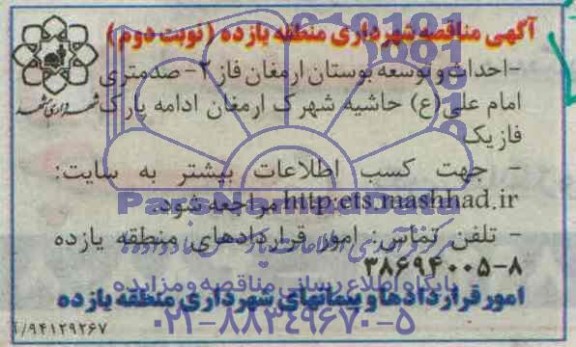 آگهی مناقصه شهرداری منطقه یازده (نوبت دوم)
-احداث و توسعه بوستان ارمغان فاز ۲- صدمتری
امام علی(ع) حاشیه شهرک ارمغان ادامه پارک
فاز یک
- جهت کسب اطلاعات بیشتر به سایت:
http:ets.mashhad.ir مراجعه شود.
- تلفن تماس: امور قراردادهای منطقه یازده
۳۸۶۹۴۰۰۵-۸
امور قراردادها و پیمانهای شهرداری منطقه یازده
شهرداری مشهد
ParsNamadData
پایگاه اطلاع رسانی مناقصه و مزایده
۰۲۱-۸۸۳۴۹۶۷۰-۵
/۹۴۱۲۹۲۶۷